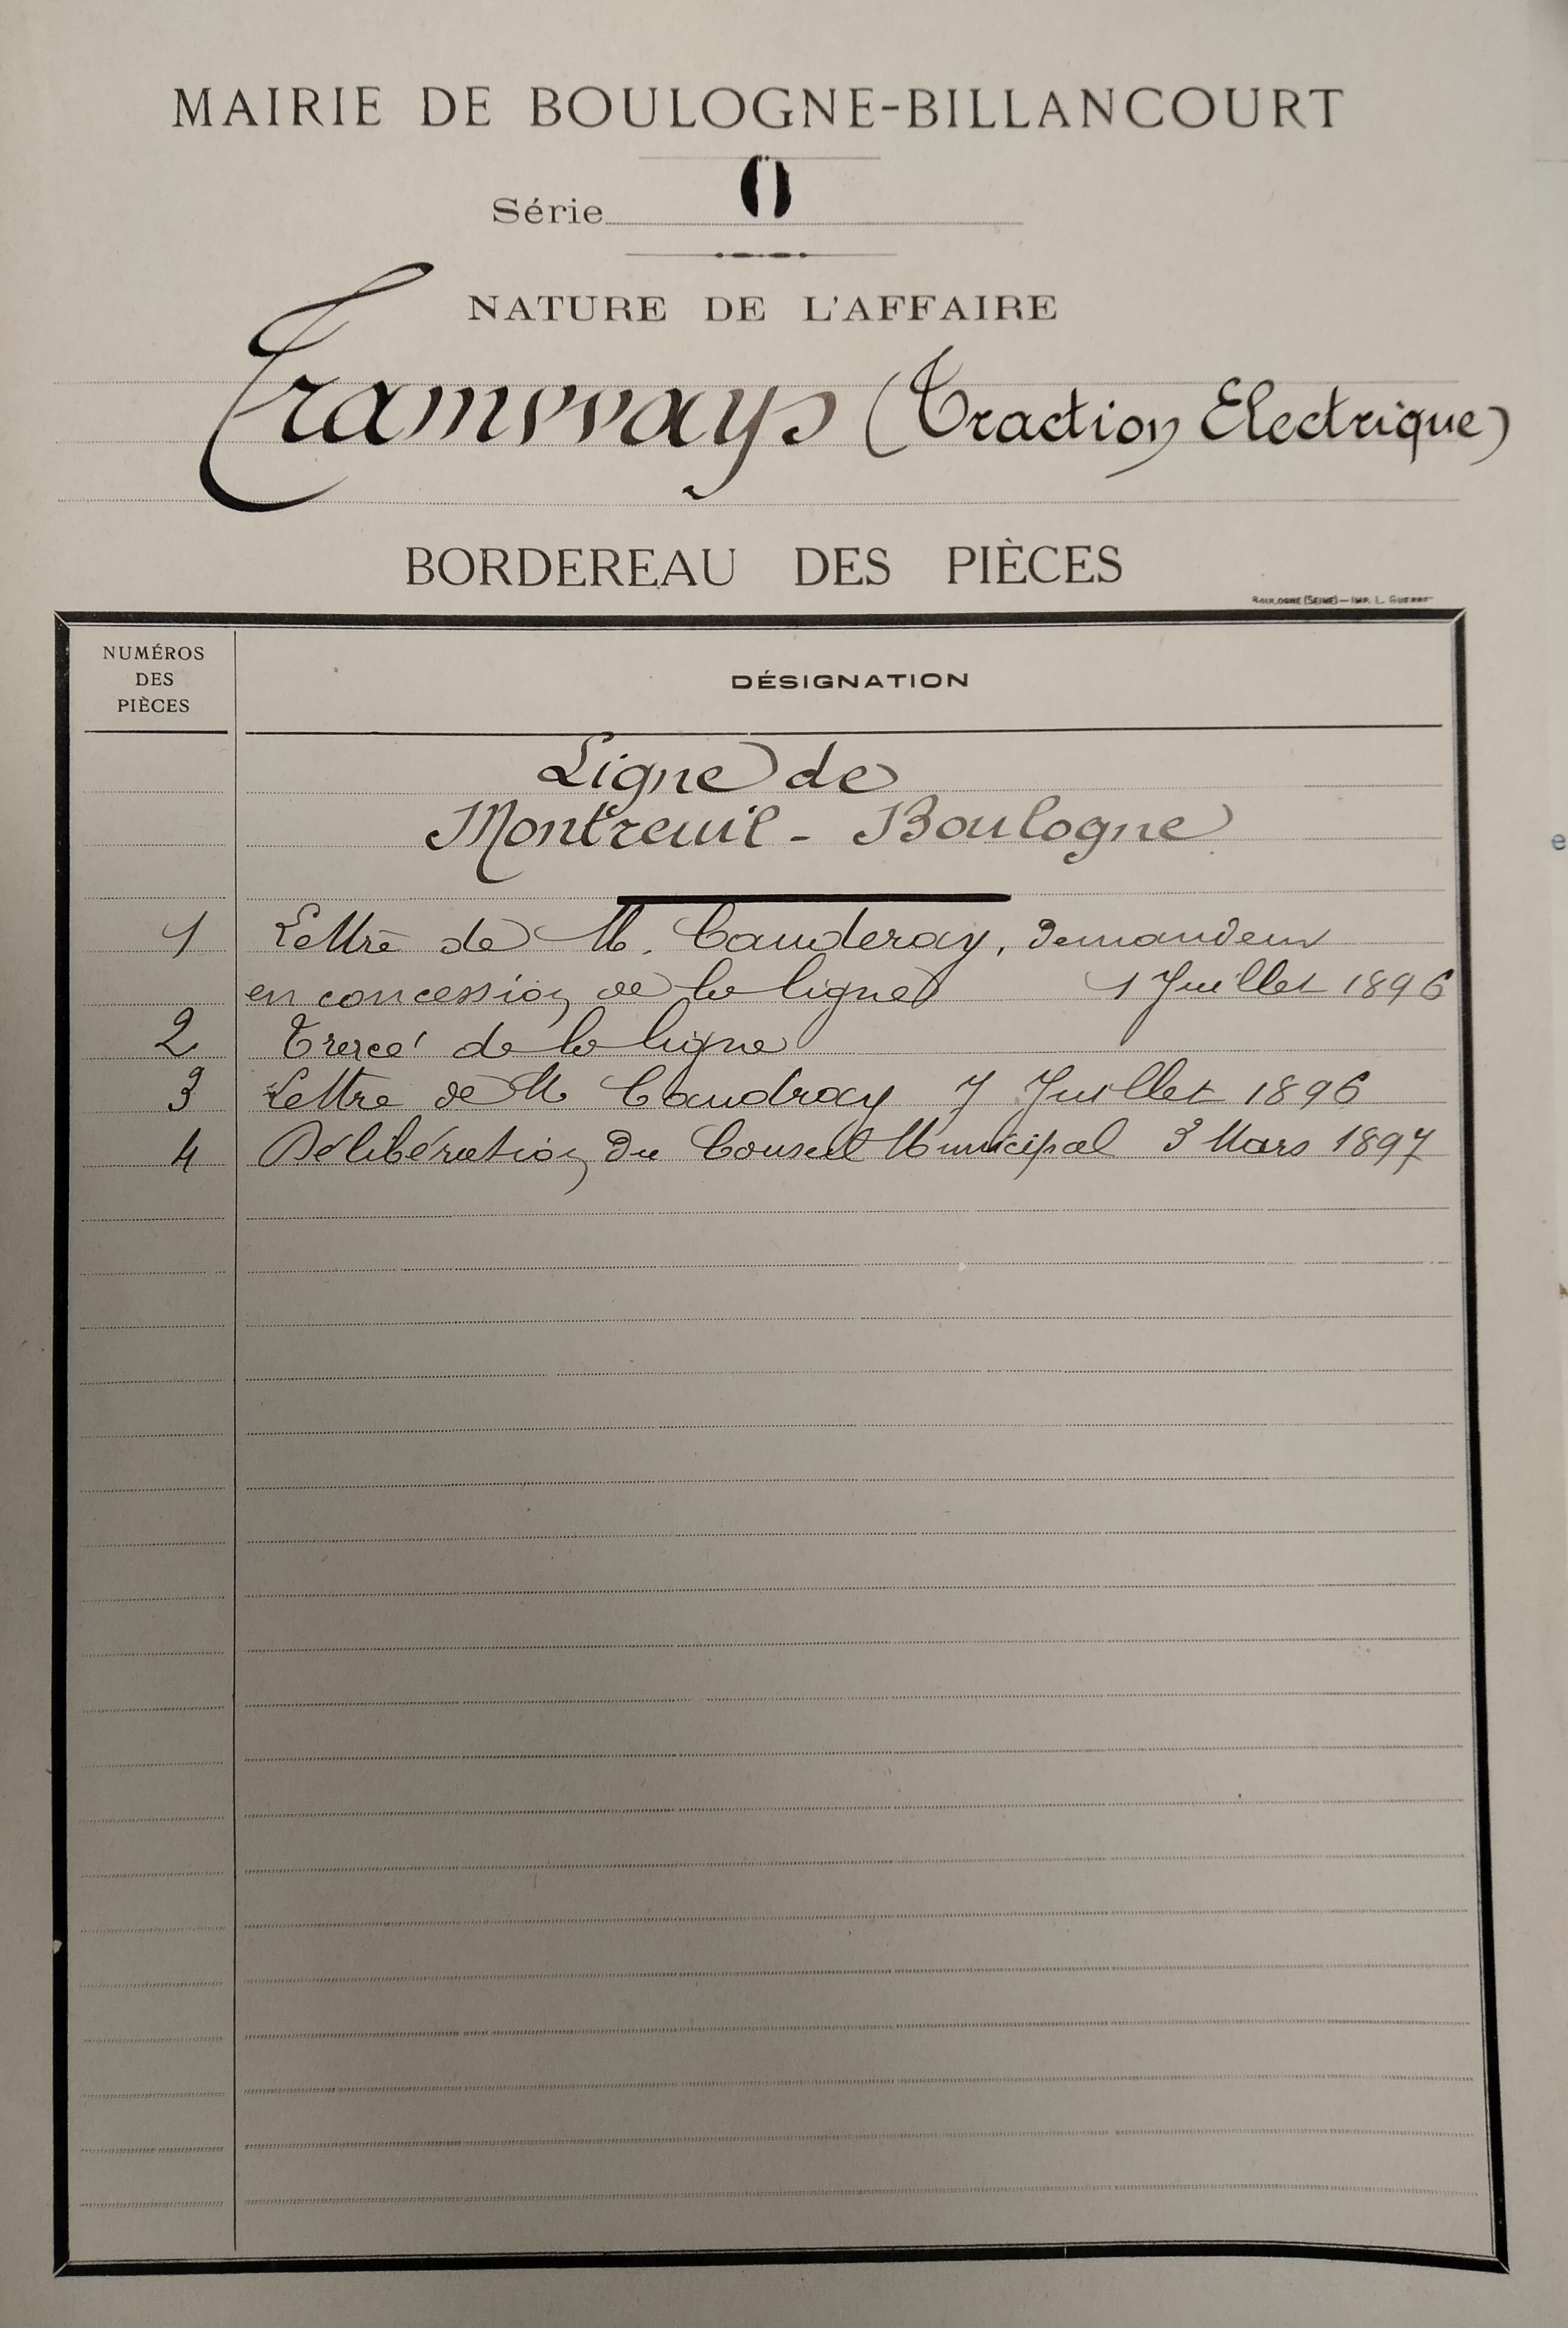 MAIRIE DE BOULOGNE-BILLANCOURT
Série O
NATURE DE L'AFFAIRE
Tramways (Traction Electrique)
BORDEREAU DES PIÈCES
BOULOGNE (SEINE) — IMP. L. GUERRE
NUMÉROS DES PIÈCES
DÉSIGNATION
Ligne de
Montreuil - Boulogne
1 Lettre de M. Cauderay, demandeur
en concession de la ligne 1 Juillet 1896
2 Tracé de la ligne
3 Lettre de M Caudray 7 Juillet 1896
4 Délibération du Conseil Municipal 3 Mars 1897
e